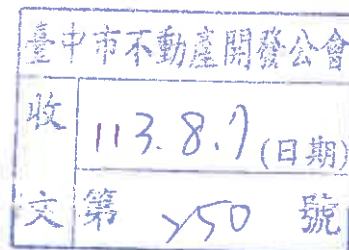 臺中市不動產開發公會
收文
113.8.7(日期)
第 250 號